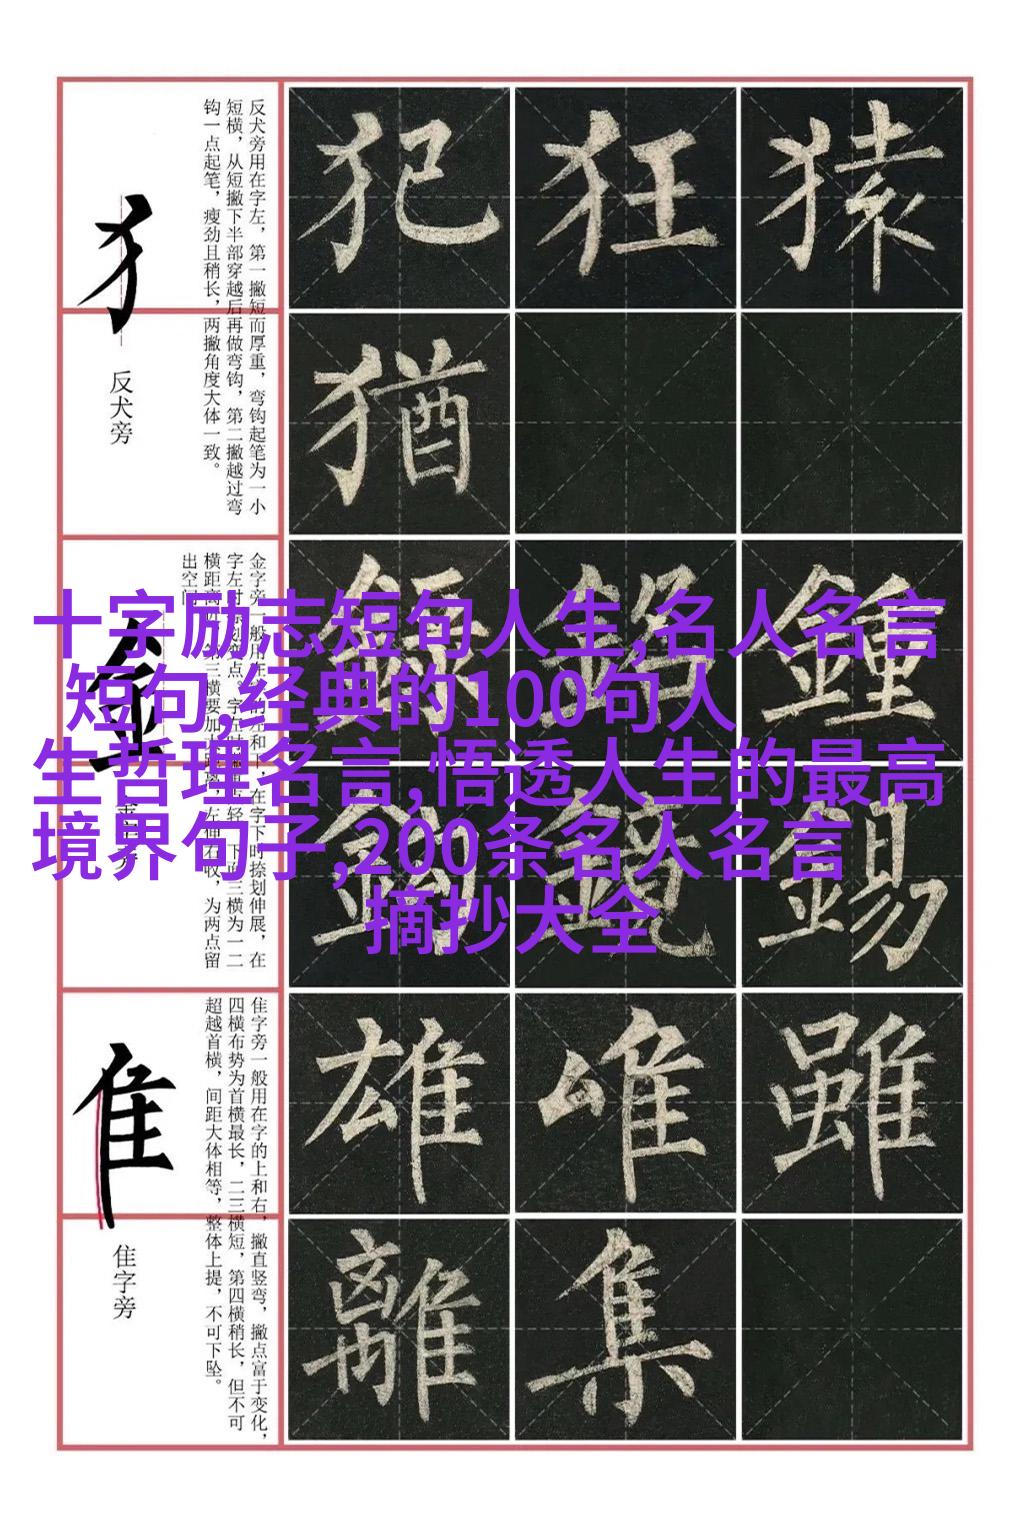 犯狂猿
反犬旁用在字左，第一撇短而厚重，弯钩起笔为一小
短横，从短撇下半部穿越后再做弯钩，第二撇越过弯
钩一点起笔，瘦劲且稍长，两撇角度大体一致。
犭
反犬旁
猶
金字旁一般用在
出空
十字励志短句人生,名人名言
短句,经典的100句人
生哲理名言,悟透人生的最高
境界句子,200条名人名言
摘抄大全
鍾
錫
隹字旁一般用在字的上和右，撇直竖弯，撇点富于变化，
四横布势为首横最长，二三横短，第四横稍长，但不可
超越首横，间距大体相等，整体上提，不可下坠。
隹
隹字旁
雄唯雖
離集